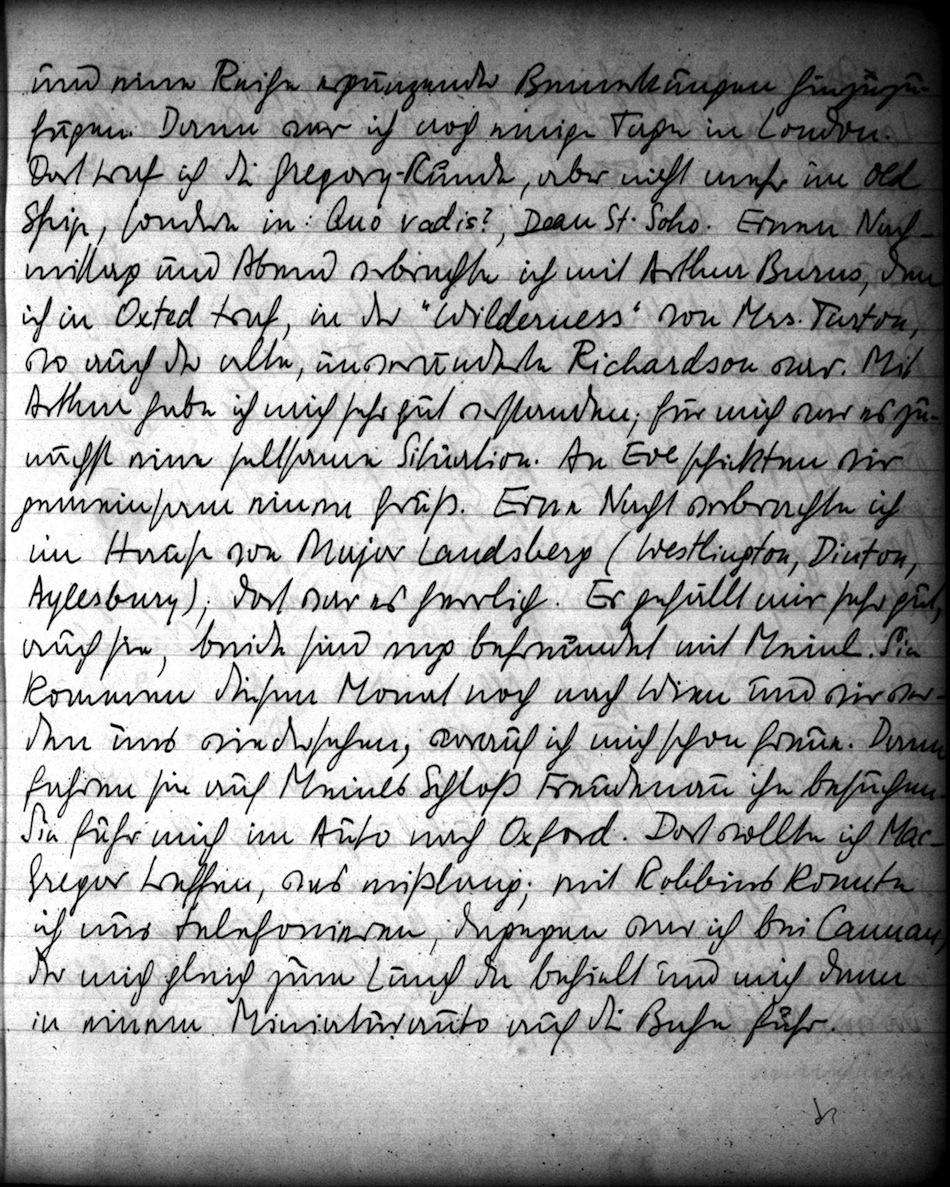 und eine Reihe ergänzender Bemerkungen hinzuzu-
fügen. Dann war ich noch einige Tage in London.
Dort traf ich die Gregory-Runde, aber nicht mehr im Old
Ship, sondern in: Quo vadis?, Dean St. Soho. Einen Nach-
mittag und Abend verbrachte ich mit Arthur Burns, den
ich in Oxted traf, in der "Wilderness" von Mrs. Turton,
wo auch der alte, unveränderte Richardson war. Mit
Arthur habe ich mich sehr gut verstanden; für mich war es zu-
nächst eine seltsame Situation. An Eve schickten wir
gemeinsam einen Gruß. Eine Nacht verbrachte ich
im Haus von Major Landsberg (Westlington, Dinton,
Aylesbury); dort war es herrlich. Er gefällt mir sehr gut,
auch sie, beide sind eng befreundet mit Meinl. Sie
kommen diesen Monat noch nach Wien und wir wer-
den uns wiedersehen, worauf ich mich schon freue. Dann
fahren sie auf Meinls Schloß Freudenau ihn besuchen.
Sie fuhr mich im Auto nach Oxford. Dort wollte ich Mac-
Gregor treffen, was mißlang; mit Robbins konnte
ich nur telefonieren, dagegen war ich bei Cannan,
der mich gleich zum Lunch da behielt und mich dann
in einem Miniaturauto auf die Bahn fuhr.